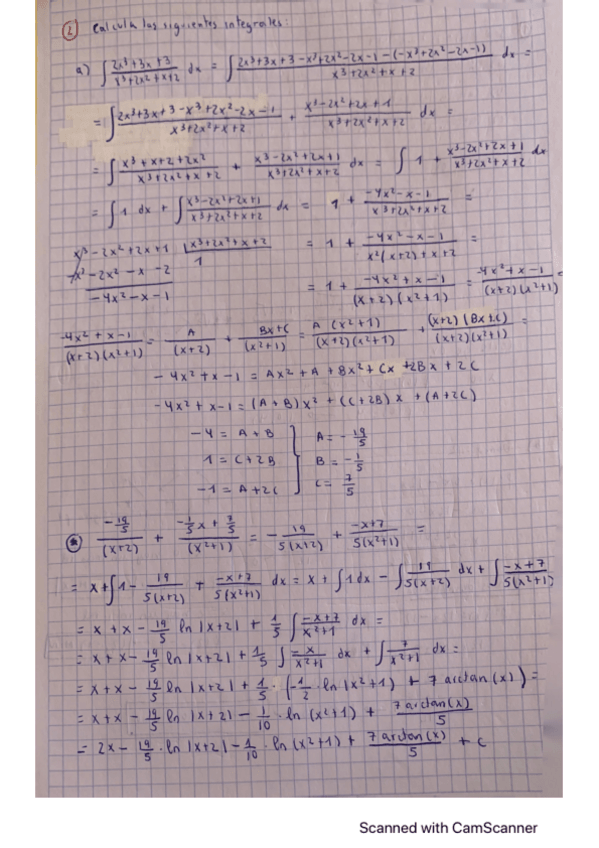 2) Calcula las siguientes integrales:
a) ∫ (2x³+3x+3)/(x³+2x²+x+2) dx = ∫ (2x³+3x+3-x³+2x²-2x-1-(-x³+2x²-2x-1))/(x³+2x²+x+2) dx =
= ∫ (2x³+3x+3-x³+2x²-2x-1)/(x³+2x²+x+2) + (x³-2x²+2x+1)/(x³+2x²+x+2) dx =
= ∫ (x³+x+2+2x²)/(x³+2x²+x+2) + (x³-2x²+2x+1)/(x³+2x²+x+2) dx = ∫ 1 + (x³-2x²+2x+1)/(x³+2x²+x+2) dx
= ∫ 1 dx + ∫ (x³-2x²+2x+1)/(x³+2x²+x+2) dx = 1 + (-4x²-x-1)/(x³+2x²+x+2) =
x³-2x²+2x+1 | x³+2x²+x+2
-x³-2x²-x-2   1
-4x²-x-1
= 1 + (-4x²-x-1)/(x²(x+2)+x+2) =
= 1 + (-4x²+x-1)/((x+2)(x²+1)) = (-4x²+x-1)/((x+2)(x²+1)) =
(-4x²+x-1)/((x+2)(x²+1)) = A/(x+2) + (Bx+C)/(x²+1) = A(x²+1)/((x+2)(x²+1)) + (x+2)(Bx+C)/((x+2)(x²+1)) =
-4x²+x-1 = Ax²+A+Bx²+Cx+2Bx+2C
-4x²+x-1 = (A+B)x²+(C+2B)x+(A+2C)
-4 = A+B   A = -19/5
1 = C+2B   B = -1/5
-1 = A+2C   C = 7/5
* (-19/5)/(x+2) + (-1/5x+7/5)/(x²+1) = -19/(5(x+2)) + (-x+7)/(5(x²+1)) =
= x+∫1- 19/(5(x+2)) + (-x+7)/(5(x²+1)) dx = x+∫1dx - ∫ 19/(5(x+2)) dx + ∫ (-x+7)/(5(x²+1))
= x+x- 19/5 ln|x+2| + 1/5 ∫ (-x+7)/(x²+1) dx =
= x+x- 19/5 ln|x+2| + 1/5 ∫ -x/(x²+1) dx + ∫ 7/(x²+1) dx =
= x+x- 19/5 ln|x+2| + 1/5 · (-1/2 · ln|x²+1) + 7 arctan(x) ) =
= x+x- 19/5 · ln|x+2| - 1/10 · ln(x²+1) + 7 arctan(x)/5
= 2x- 19/5 · ln|x+2| - 1/10 · ln(x²+1) + 7 arctan(x)/5 + C
Scanned with CamScanner